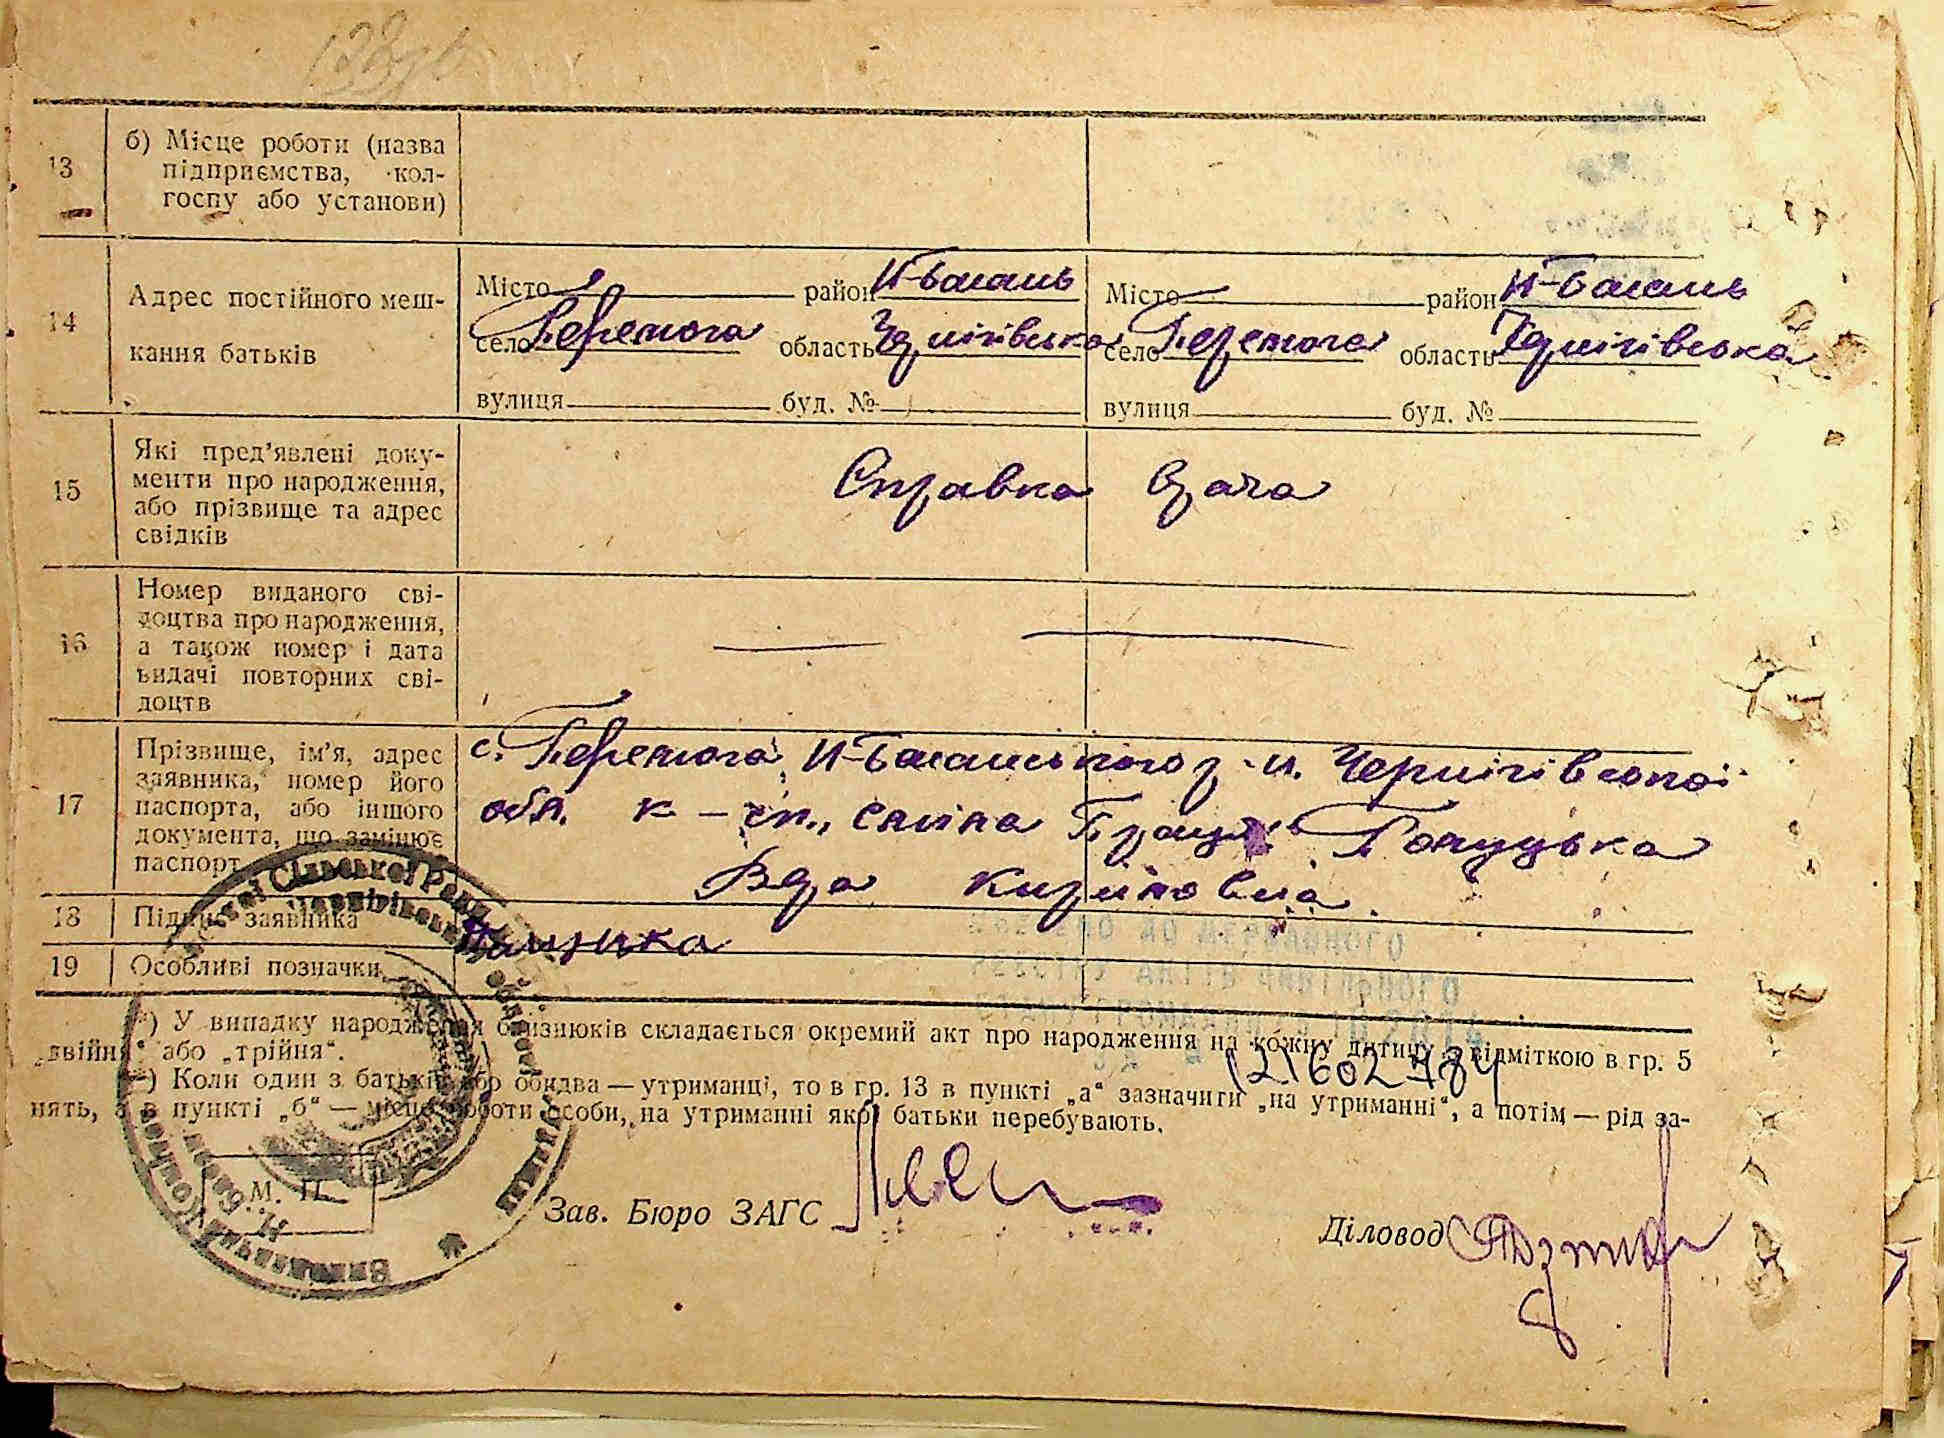 13
б) Місце роботи (назва
підприємства, кол-
госпу або установи)
14
Адрес постійного меш-
кання батьків
Місто район Н-Басань
село Перемога область Чернігівська
вулиця буд. №
Місто район Н-Басань
село Перемога область Чернігівська
вулиця буд. №
15
Які пред’явлені доку-
менти про народження,
або прізвище та адрес
свідків
Справка врача
16
Номер виданого сві-
доцтва про народження,
а також номер і дата
видачі повторних сві-
доцтв
17
Прізвище, ім’я, адрес
заявника, номер його
паспорта, або іншого
документа, що замінює
паспорт
с. Перемога, Н-Басанського р-н. Чернігівської
обл. к-сп.
Віра Кирилівна
18
Підпис заявника
19
Особливі позначки
*) У випадку народження близнюків складається окремий акт про народження на кожну дитину з відміткою в гр. 5
„двійня“ або „трійня“.
**) Коли один з батьків або обидва — утриманці, то в гр. 13 в пункті „а“ зазначити „на утриманні“, а потім — рід за-
нять, а в пункті „б“ — місце роботи особи, на утриманні якої батьки перебувають.
М. П.
Зав. Бюро ЗАГС
Діловод